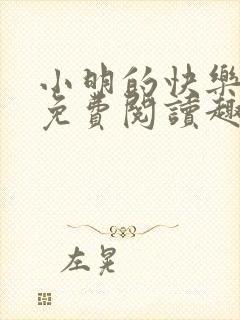 小明的快樂
免費閱讀趣
左晃